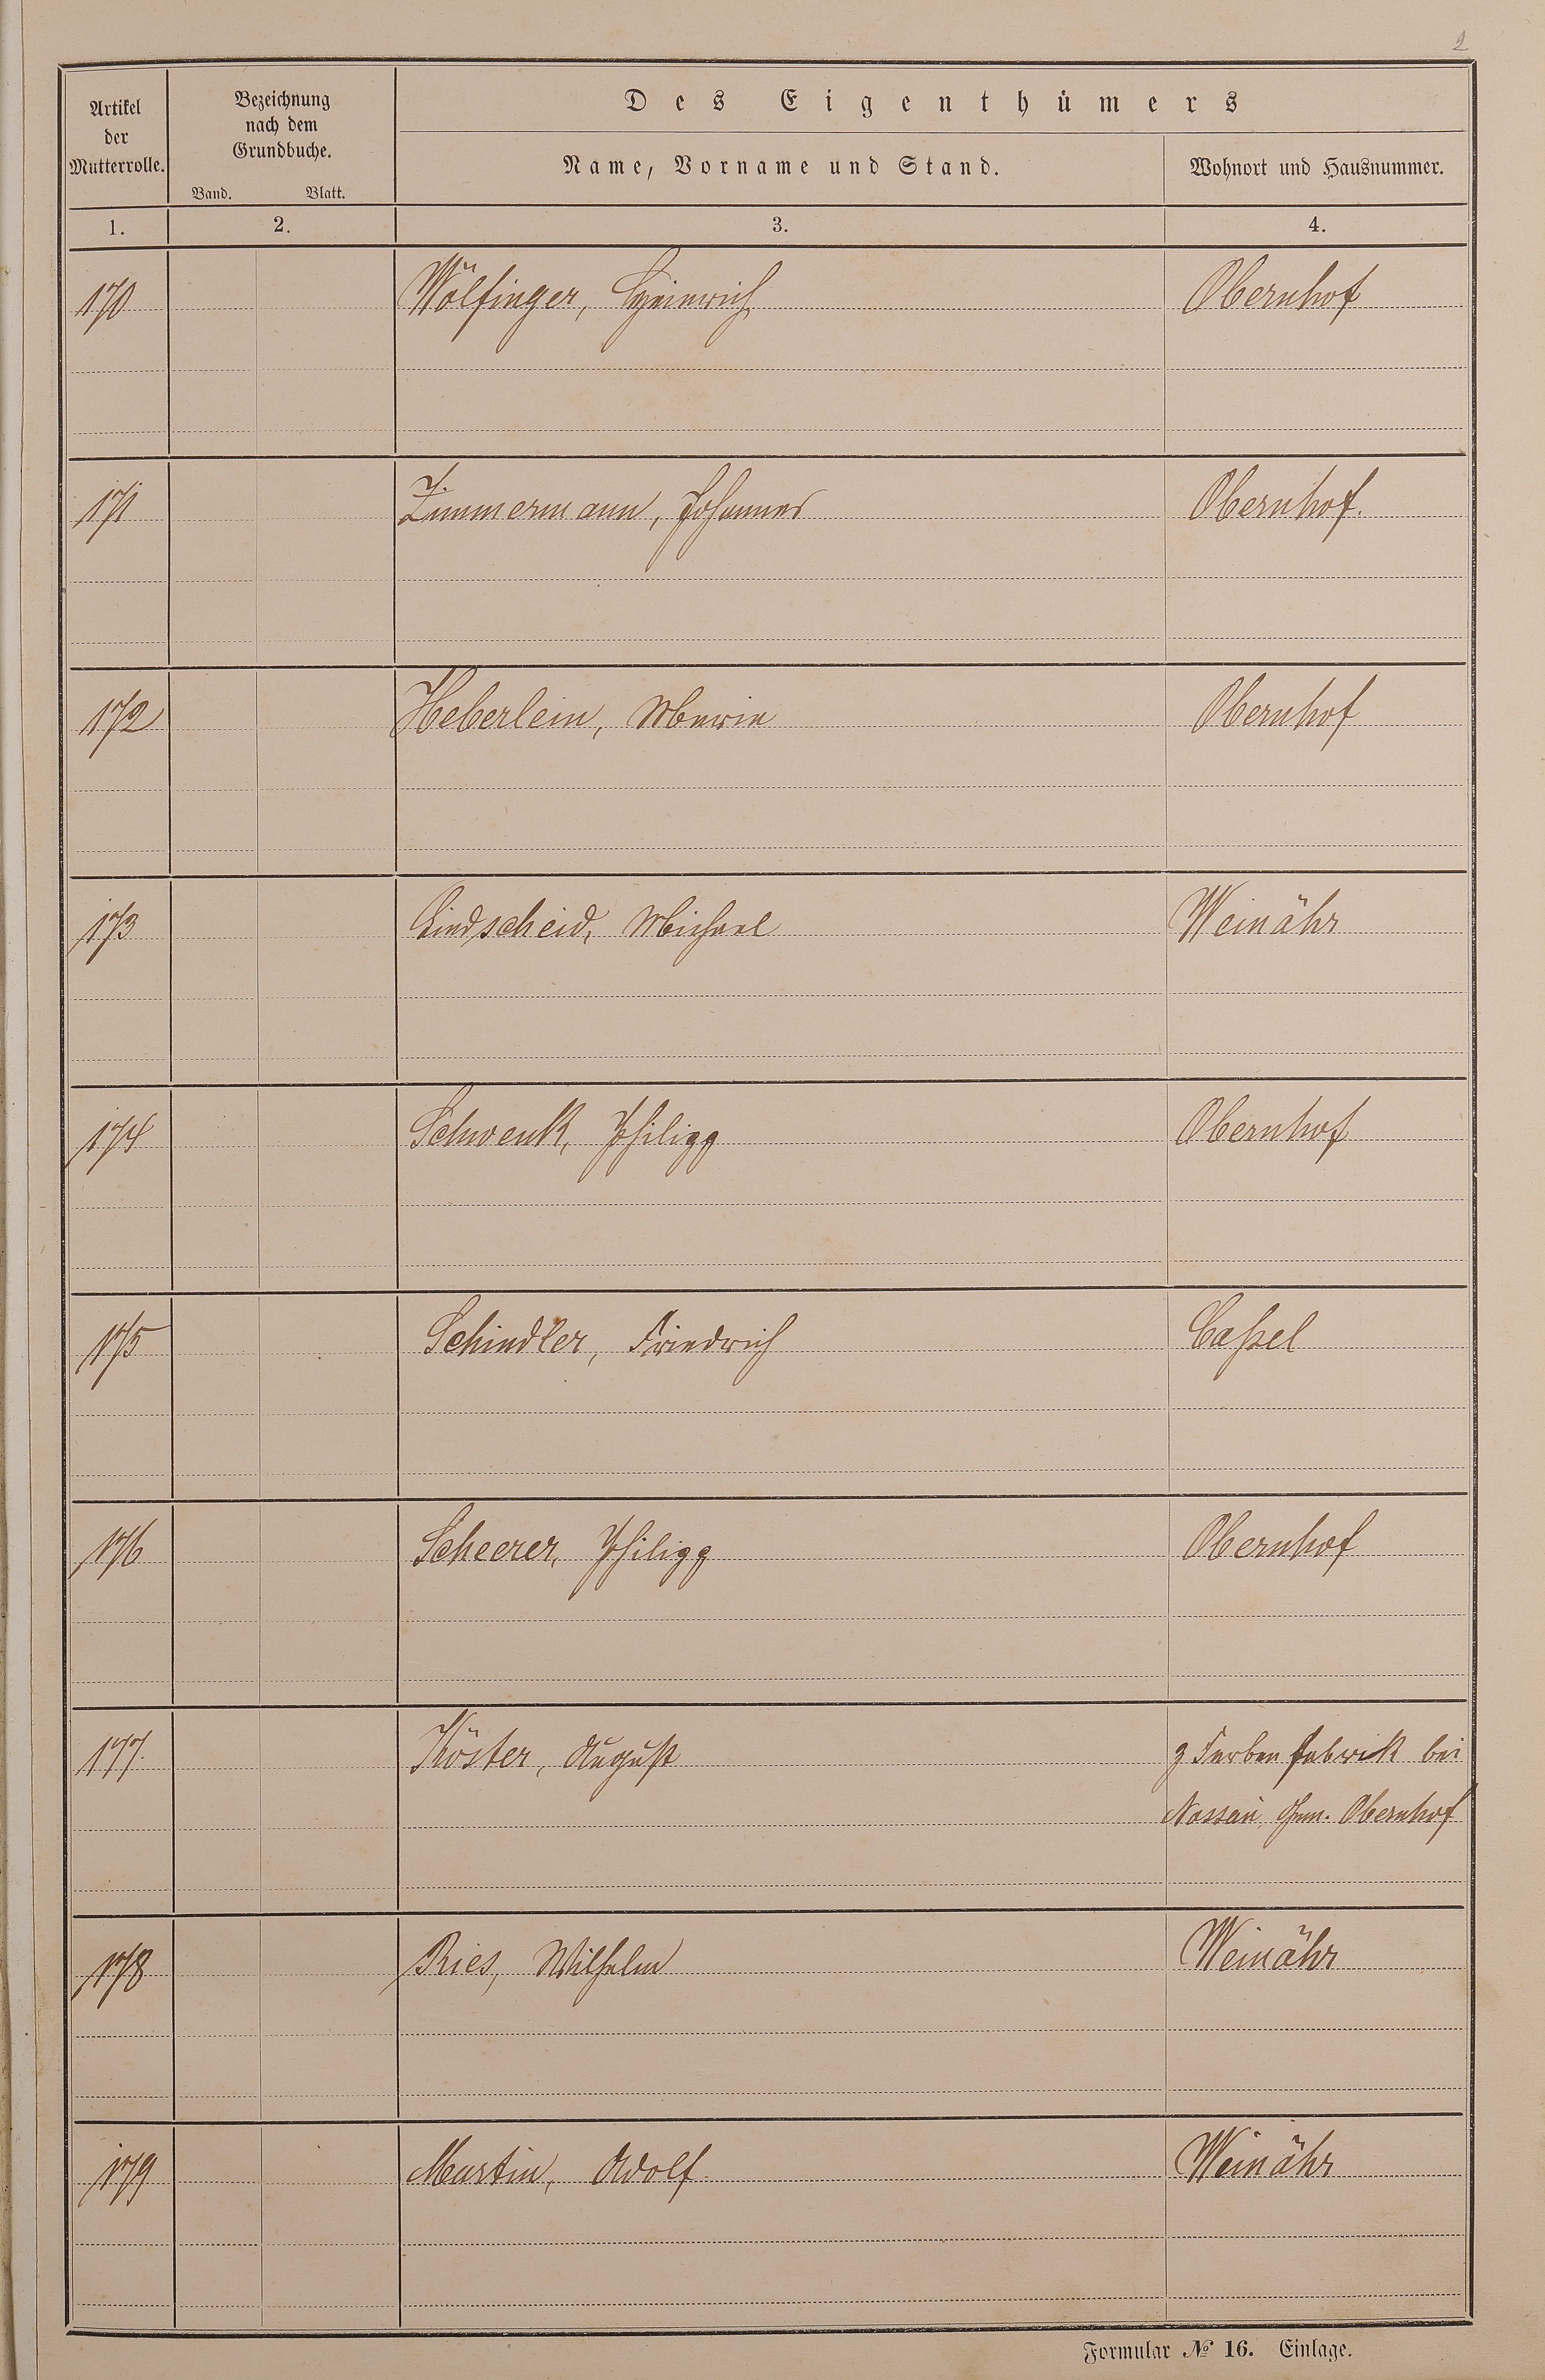 2
Artikel der Mutterrolle.
Bezeichnung nach dem Grundbuche.
Band. Blatt.
Des Eigenthümers
Name, Vorname und Stand.
Wohnort und Hausnummer.
1. 2. 3. 4.
170 Wölfinger, Heinrich Obernhof
171 Zimmermann, Johannes Obernhof.
172 Heberlein, Marie Obernhof
173 Lindscheid, Michael Weinähr
174 Schwenk, Philipp Obernhof
175 Schindler, Friedrich Caßel
176 Scheerer, Philipp Obernhof
177. Köster, August z Farbenfabrik bei
Nassau, Gem. Obernhof
178 Ries, Wilhelm Weinähr
179 Martin, Adolf. Weinähr
Formular № 16. Einlage.